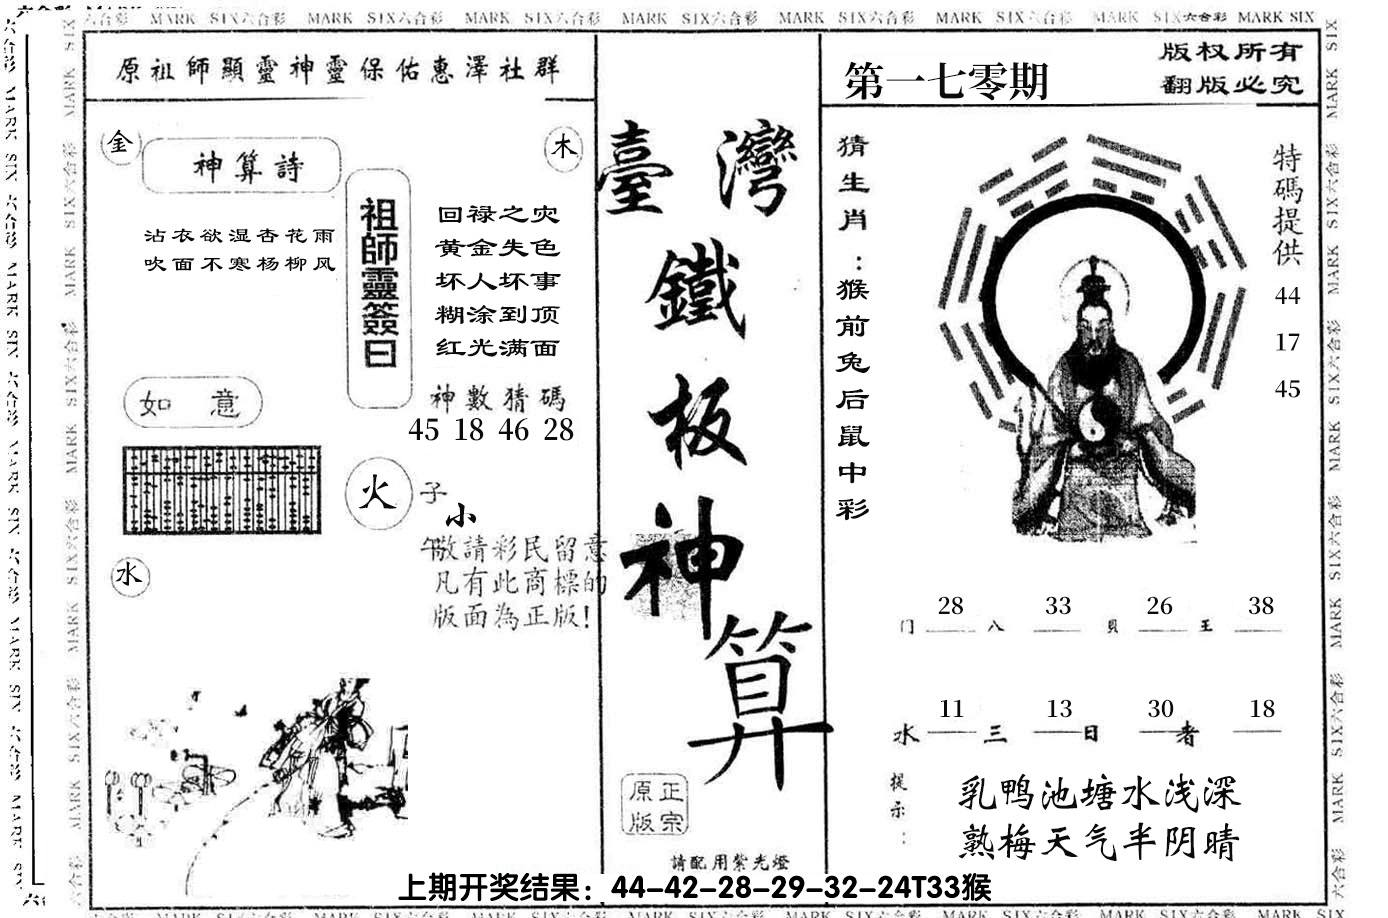 六合彩 MARK SIX六合彩 MARK SIX六合彩 MARK SIX六合彩 MARK SIX六合彩 MARK SIX六合彩 MARK SIX六合彩 MARK SIX六合彩 MARK SIX
原祖師顯靈神靈保佑惠澤社群
金
木
神算詩
沾衣欲湿杏花雨
吹面不寒杨柳风
祖師靈簽曰
回禄之灾
黄金失色
坏人坏事
糊涂到顶
红光满面
神數猜碼
45 18 46 28
如 意
火
子
小
午
敬請彩民留意
凡有此商標的
版面為正版!
水
臺灣
鐵
板
神
算
正宗
原版
請配用紫光燈
第一七零期
版权所有
翻版必究
猜生肖:猴前兔后鼠中彩
特碼提供
44
17
45
28 33 26 38
门 八 貝 王
11 13 30 18
水 三 日 者
提示:
乳鸭池塘水浅深
熟梅天气半阴晴
上期开奖结果：44-42-28-29-32-24T33猴